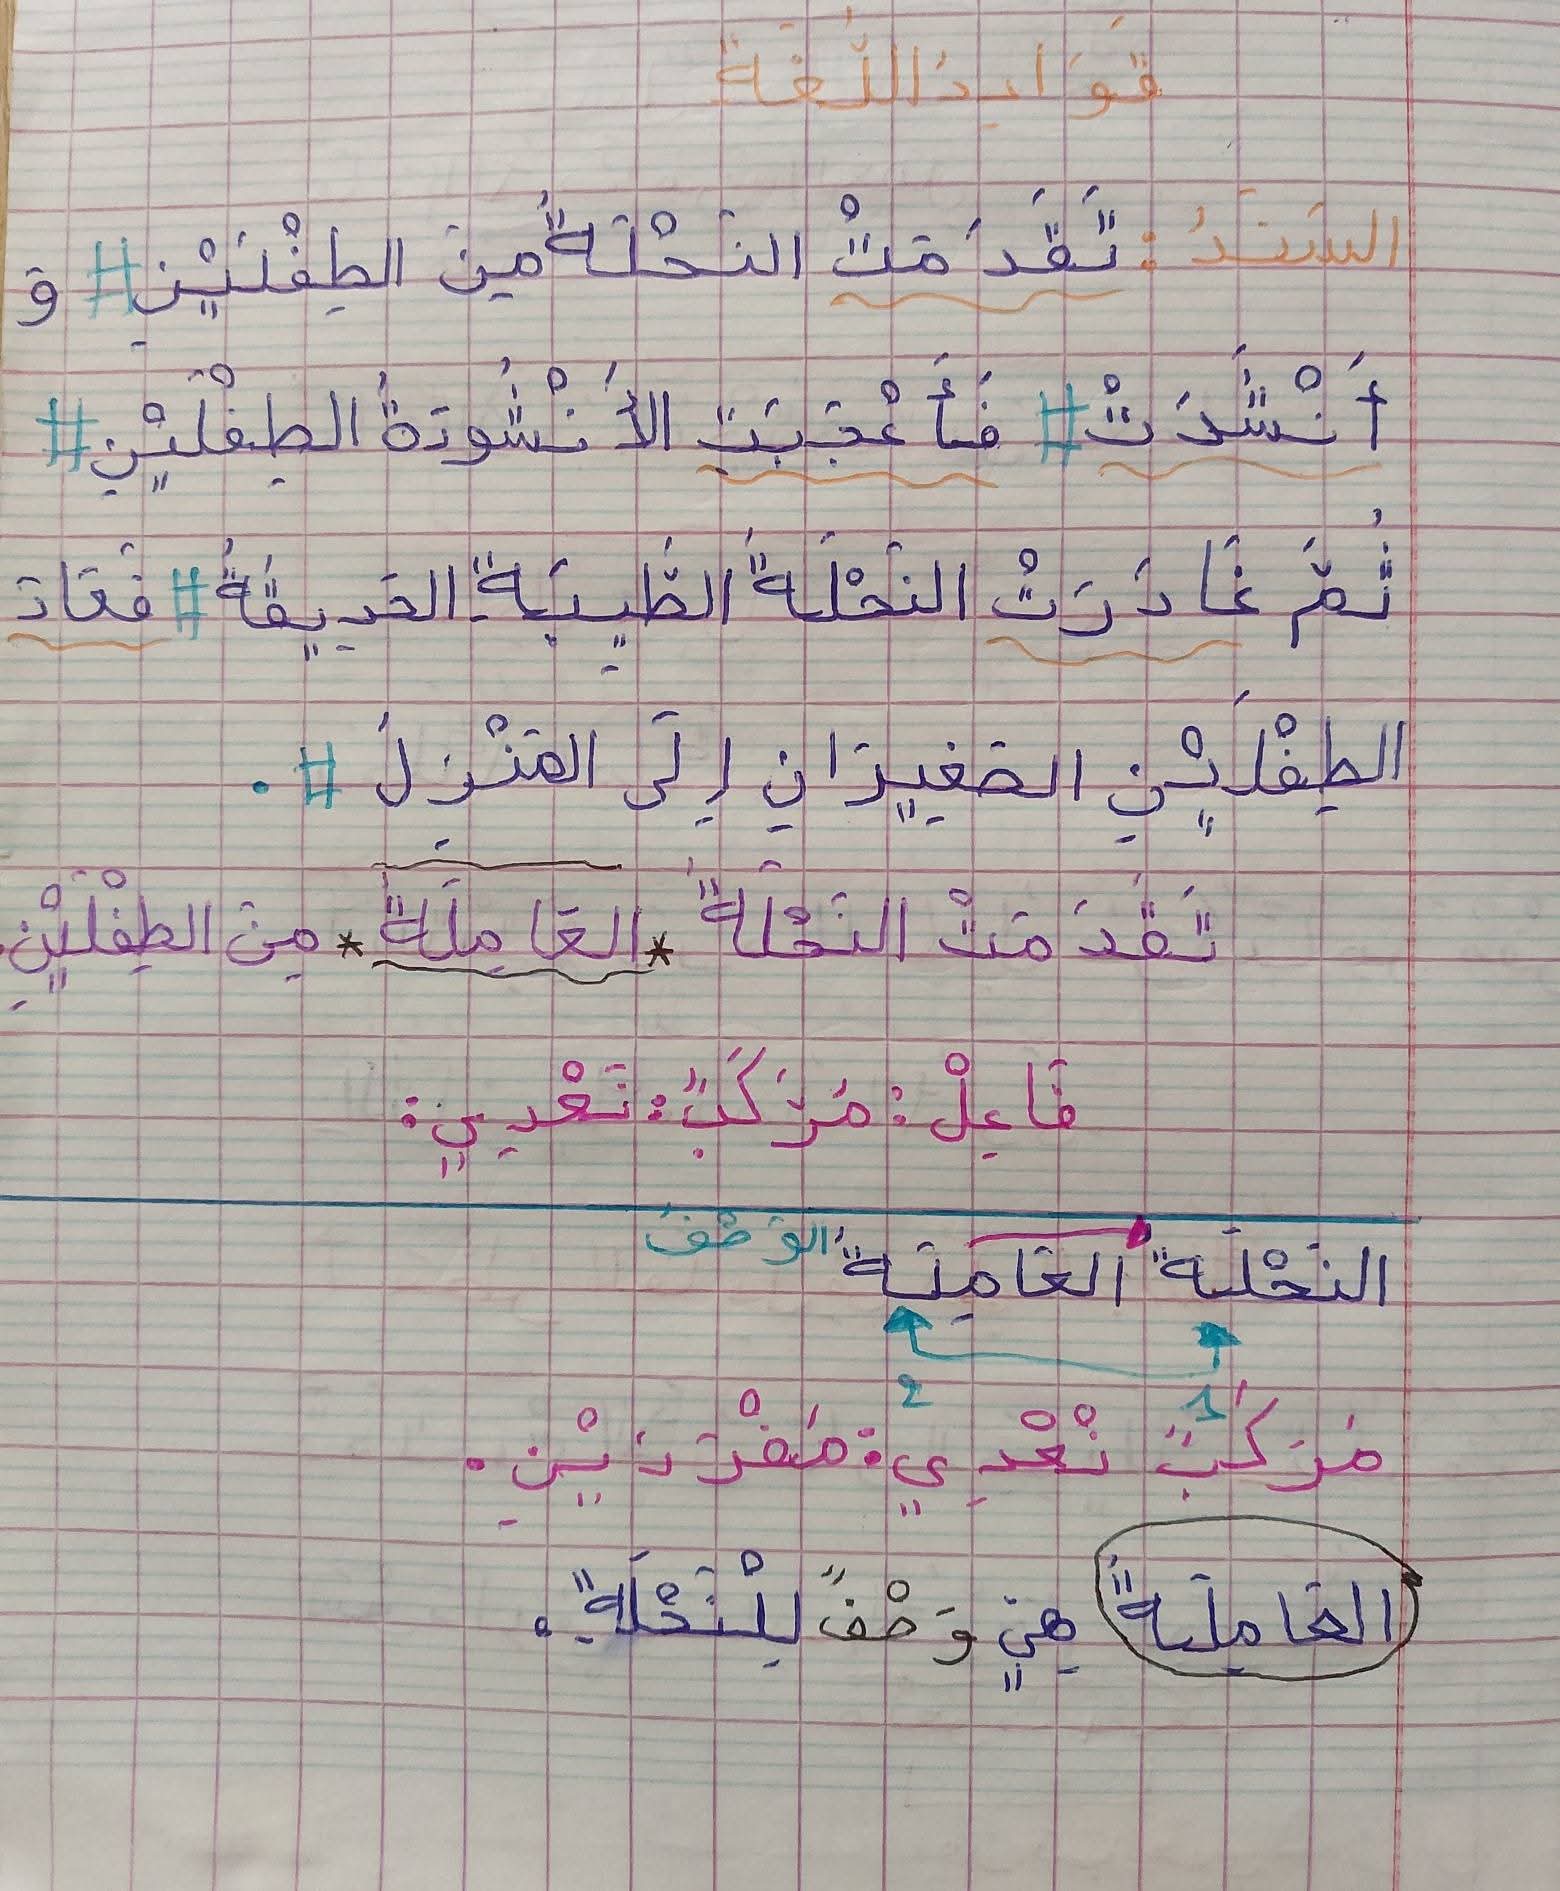 قوايد اللّغة
السند : تَقَدَمَتْ النَحْلَةُ مِنَ الطِفْلَيْنِ # وَ
أَنْشَدَتْ # فَأَعْجَبَتِ الأُنْشُودَةُ الطِفْلَيْنِ #
ثُمَّ غَادَرَتْ النَحْلَةُ الطَّيِبَةِ الحَدِيقَةُ # فَعَادَ
الطِفْلَيْنِ الصَغِيرَانِ إِلَى المَنْزِلُ # .
تَقَدَمَتْ النَحْلَةُ * العَامِلَةُ * مِنَ الطِفْلَيْنِ.
فَاعِلْ : مُرَكَبٌ : نَعْدِيي :
النَحْلَة العَامِلَةُ الوَصْفُ
2 1
مُرَكَبٌ نْعْدِي : مُفْرَدَيْنِ .
العَامِلَةُ هِيَ وَصْفٌ لِلْنَحْلَةِ .